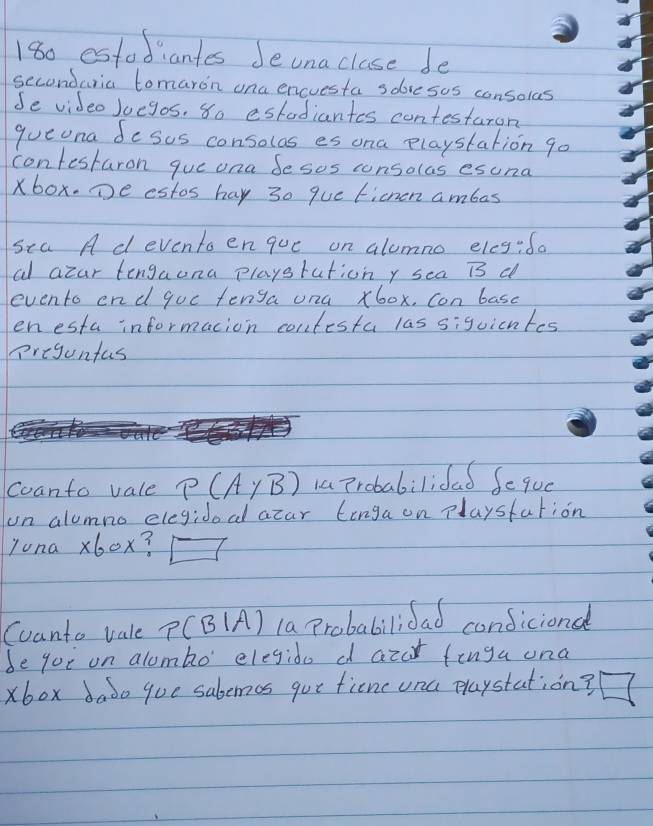 180 estudiantes de una clase de
secundaria tomarón una encuesta sobre sus consolas
de video juegos. 80 estudiantes contestaron
que una de sus consolas es una Playstation 90
contestaron que una de sus consolas es una
Xbox. De estos hay 30 que tienen ambas
sea A el evento en que un alumno elegido
al azar tenga una Playstation y sea B el
evento en el que tenga una Xbox. Con base
en esta informacion contesta las siguientes
Preguntas
Cuanto vale P(A y B) la Probabilidad de que
un alumno elegido al azar tenga un Playstation
y una xbox?
Cuanto vale P(B|A) la Probabilidad condicional
de que un alumno elegido al azar tenga una
xbox dado que sabemos que tiene una playstation?